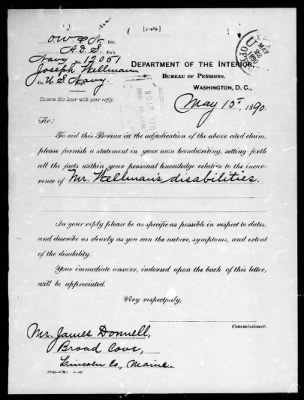 O W & N. Div.
A.D.S. Ex'r.
Navy 12051
Joseph Wellman
U S Navy.
Return this letter with your reply.
DEPARTMENT OF THE INTERIOR
BUREAU OF PENSIONS.
WASHINGTON, D. C.,
May 15", 1890.
Sir:
To aid this Bureau in the adjudication of the above cited claim,
please furnish a statement in your own handwriting, setting forth
all the facts within your personal knowledge relative to the incur-
rence of Mr. Wellman's disabilities.
In your reply please be as specific as possible in respect to dates,
and describe as clearly as you can the nature, symptoms, and extent
of the disability.
Your immediate answer, indorsed upon the back of this letter,
will be appreciated.
Very respectfully,
Commissioner.
Mr. James Donnell,
Broad Cove,
Lincoln Co, Maine.